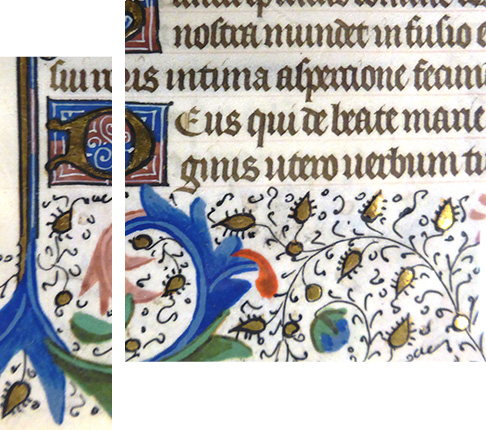 nostra mundet infusio e
sui roris intima aspercione fecun
Deus qui de beate marie
ginis utero uerbum tu